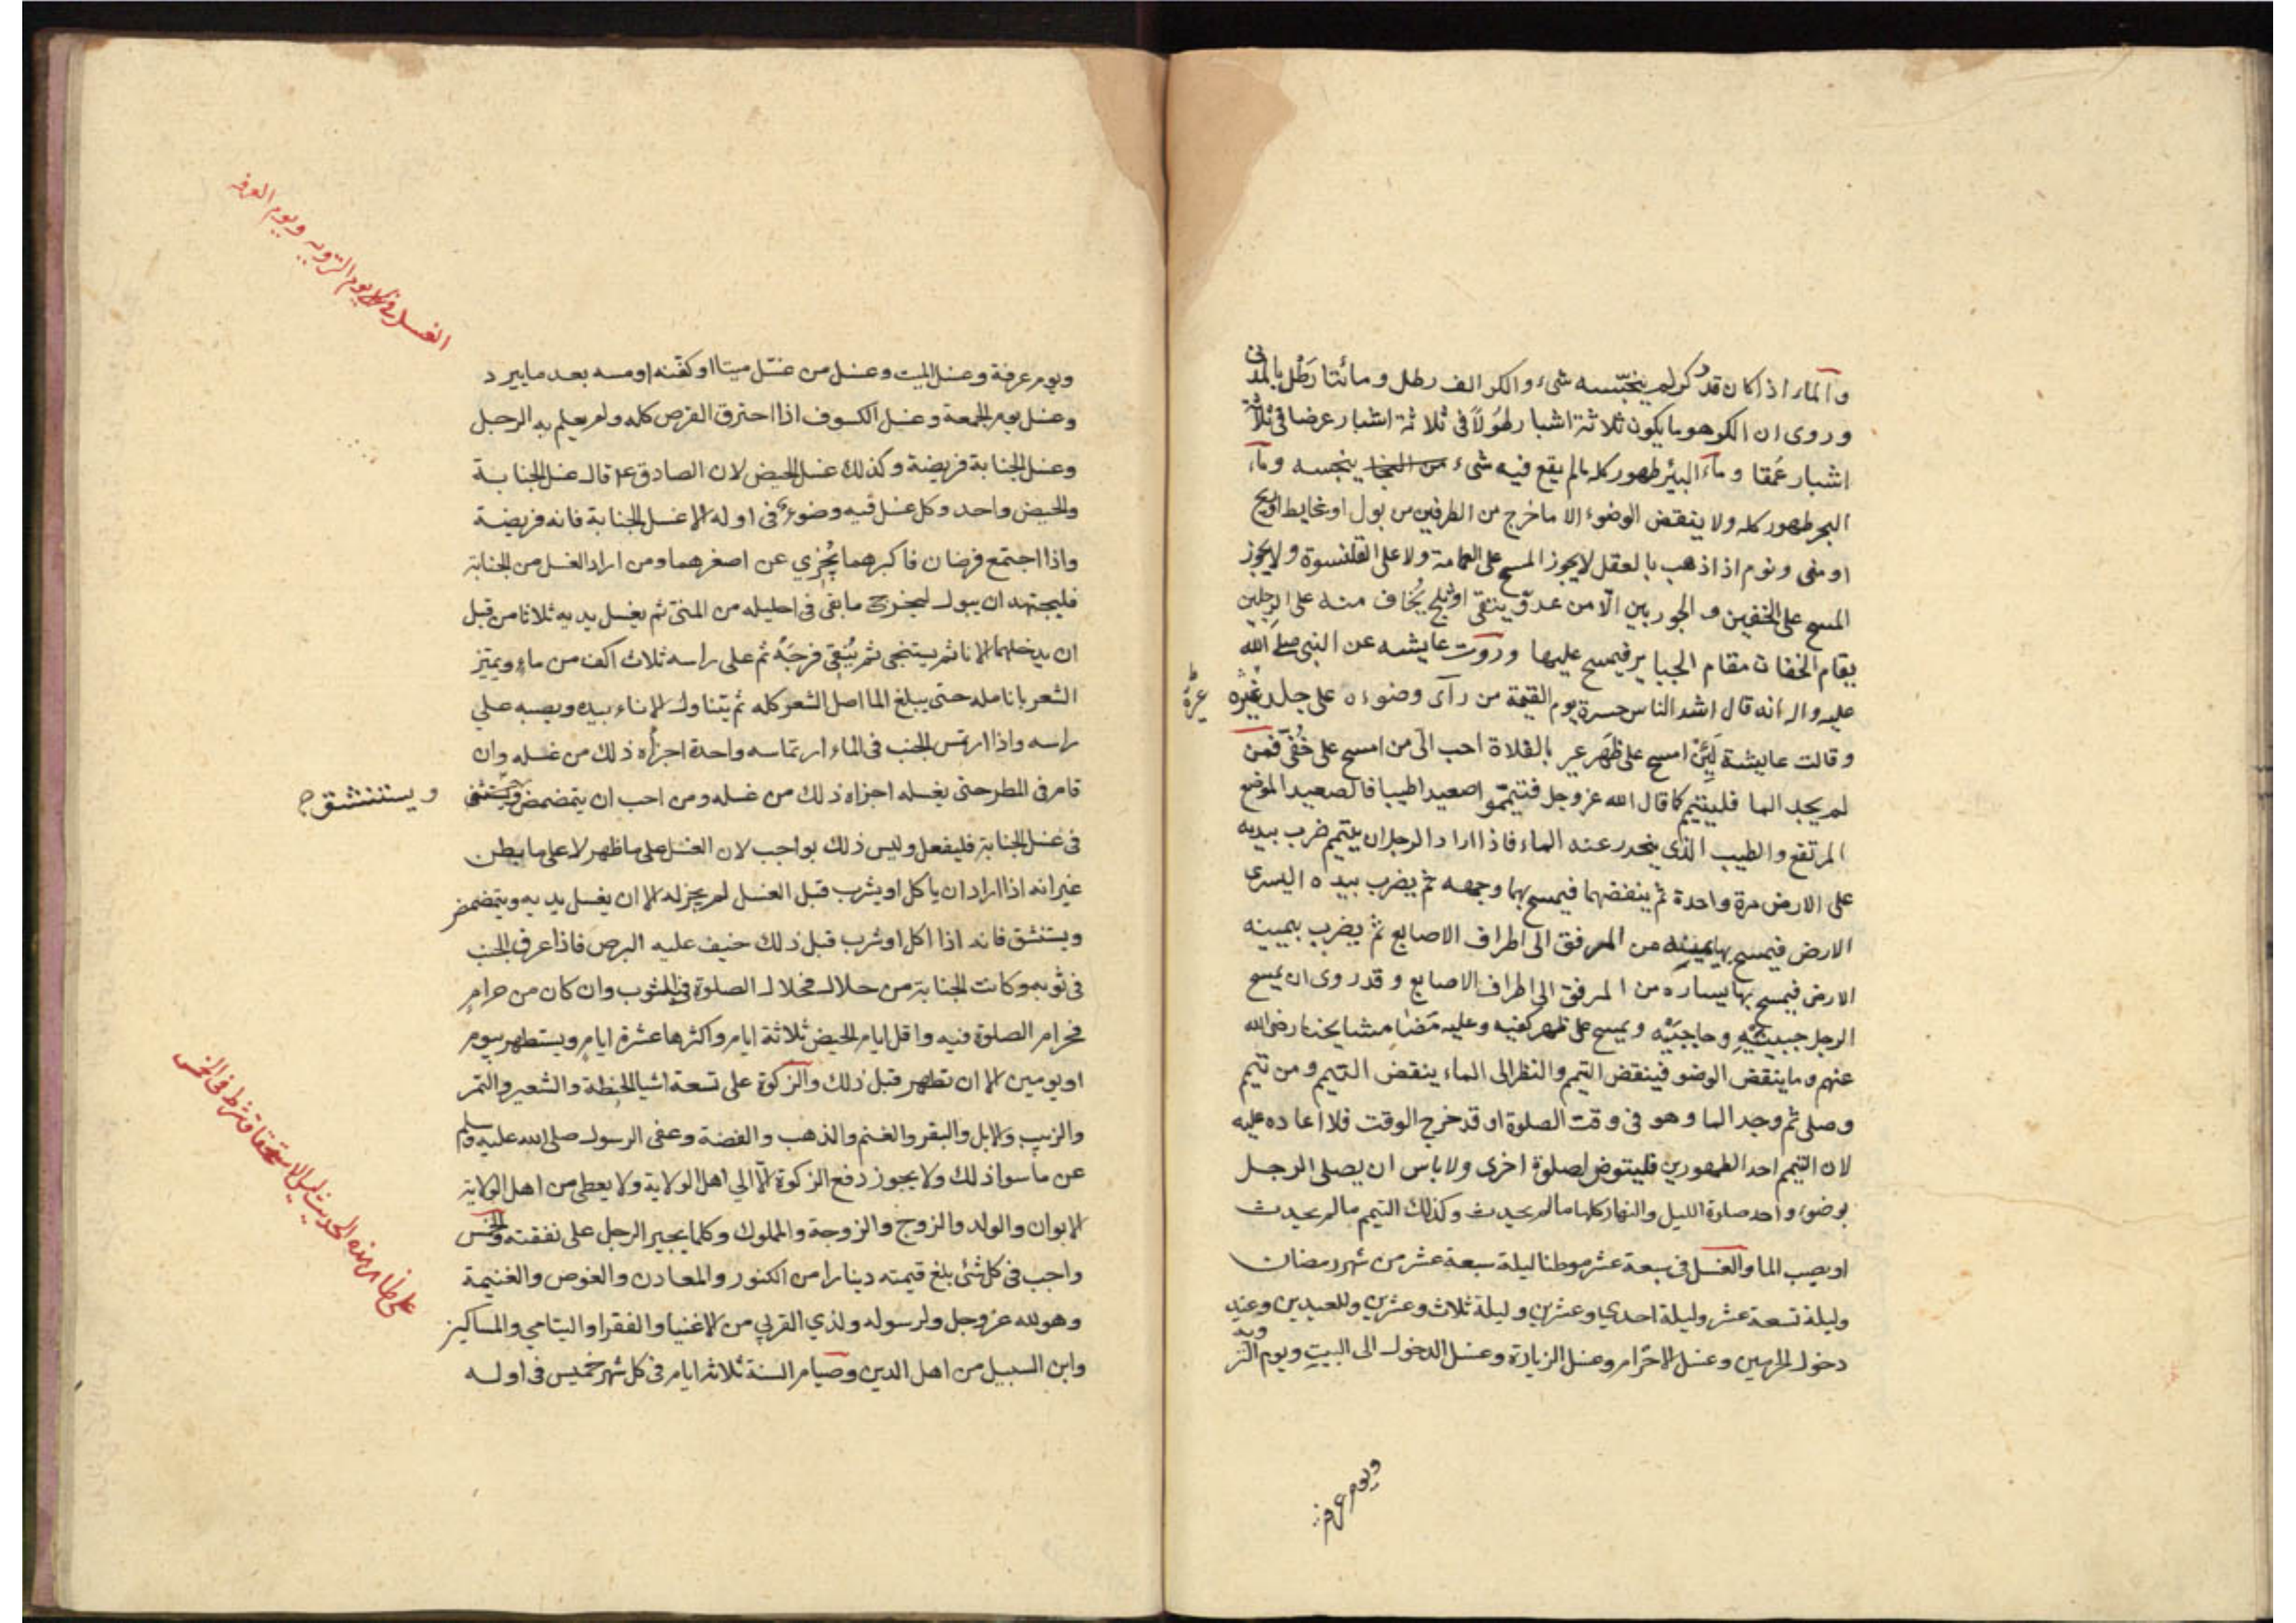 والماء اذا كان قدر كر لم ينجسه شيء والكر الف رطل ومائتا رطل بالمدني
وروى ان الكر هو ما يكون ثلاثة اشبار طولا في ثلاثة اشبار عرضا في ثلاثة
اشبار عمقا وماء البئر طهور كله مالم يقع فيه شيء ينجسه وماء
البحر طهور كله ولا ينقض الوضوء الا ما خرج من الطرفين من بول او غايط او ريح
او منى ونوم اذا ذهب بالعقل لا يجوز المسح على العمامة ولا على القلنسوة ولا يجوز
المسح على الخفين و الجوربين الّا من عدوّ يتقى او ثلج يُخاف منه على الرجلين
يقام الخفان مقام الجباير فيمسح عليها وروت عايشه عن النبي صلى الله
عليه واله انه قال اشد الناس حسرة يوم القيمة من رآى وضوءه على جلد غيره
وقالت عايشة لَئِن امسح على ظهر عير بالفلاة احب الىّ من امسح على خُفّى فمن
لم يجد الما فليتيم كما قال الله عز وجل فتيمّموا صعيدا طيبا فالصعيد الموضع
المرتفع والطيب الذى ينحدر عنه الماء فاذا اراد الرجل ان يتيمم ضرب بيديه
على الارض مرة واحدة ثم ينفضهما فيمسح بهما وجهه ثم يضرب بيده اليسرى
الارض فيمسح بها يمينه من المرفق الى اطراف الاصابع ثم يضرب بيمينه
الارض فيمسح بها يساره من المرفق الى اطراف الاصابع وقد روى ان يمسح
الرجل جبينيه وحاجبيه ويمسح على ظهر كفيه وعليه مضا مشايخنا رضى الله
عنهم وما ينقض الوضو فينقض التمم والنظر الى الماء ينقض التيمم ومن تيمم
وصلى ثم وجد الما وهو فى وقت الصلوة او قد خرج الوقت فلا اعاده عليه
لان التيمم احد الطهورين فليتوض لصلوة اخرى ولا باس ان يصلى الرجل
بوضوء واحد صلوة الليل والنهار كلها مالم يحدث وكذلك التيمم مالم يحدث
او يصيب الما والغسل فى سبعة عشر موطنا ليلة سبعة عشر من شهر رمضان
وليلة تسعة عشر وليلة احدي وعشرين وليلة ثلاث وعشرين وللعيدين وعند
دخول الحرمين وغسل الاحرام وغسل الزيارة وغسل الدخول الى البيت ويوم التروية
ويوم عرفة
ويوم عرفة وغسل الميت وغسل من غسّل ميتا او كفنه او مسه بعد ما يبرد
وغسل يوم الجمعة وغسل الكسوف اذا احترق القرص كله ولم يعلم به الرجل
وغسل الجنابة فريضة وكذلك غسل الحيض لان الصادق ع قال غسل الجنابة
والحيض واحد وكل غسل فيه وضوء فى اوله الا غسل الجنابة فانه فريضة
واذا اجتمع فرضان فاكبرهما يُجْزي عن اصغرهما ومن اراد الغسل من الجنابة
فليجتهد ان يبول ليخرج ما بقى فى احليله من المنى ثم يغسل يديه ثلاثا من قبل
ان يدخلهما الانا ثم يستنجى ثم يُنقي فرجه ثم على راسه ثلاث اكف من ماء ويميز
الشعر بانامله حتى يبلغ الما اصل الشعر كله ثم يتناول الاناء بيده ويصبه علي
راسه واذا ارتمس الجنب فى الماء ارتماسه واحدة اجزأه ذلك من غسله وان
قام فى المطر حتى يغسله اجزاه ذلك من غسله ومن احب ان يتمضمض ويستنشق
ويستنشق
فى غسل الجنابة فليفعل وليس ذلك بواجب لان الغسل على ما ظهر لا على ما بطن
غير انه اذا اراد ان ياكل او يشرب قبل الغسل لم يجز له الا ان يغسل يديه ويتمضمض
ويستنشق فانه اذا اكل او شرب قبل ذلك خيف عليه البرص فاذا عرق الجنب
فى ثوبه وكانت الجنابة من حلال فحلال الصلوة فى الثوب وان كان من حرام
فحرام الصلوة فيه واقل ايام الحيض ثلاثة ايام واكثرها عشرة ايام ويستطهر بيوم
او يومين الا ان تطهر قبل ذلك والزكوة على تسعة اشيا الحنطة والشعير والتمر
والزبيب والابل والبقر والغنم والذهب والفضة وعفى الرسول صلى الله عليه وسلم
عن ما سوا ذلك ولا يجوز دفع الزكوة الّا الي اهل الولاية ولا يعطى من اهل الولاية
الابوان والولد والزوج والزوجة والمملوك وكلما يجبر الرجل على نفقته والخمس
واجب فى كل شئ بلغ قيمته دينارا من الكنوز والمعادن والغوص والغنيمة
وهو لله عز وجل ولرسوله ولذي القربي من الاغنيا والفقرا واليتامي والمساكين
وابن السبيل من اهل الدين وصيام السنة ثلاثة ايام فى كل شهر خميس فى اوله
الغسل فى يوم الترويه ويوم العرفه